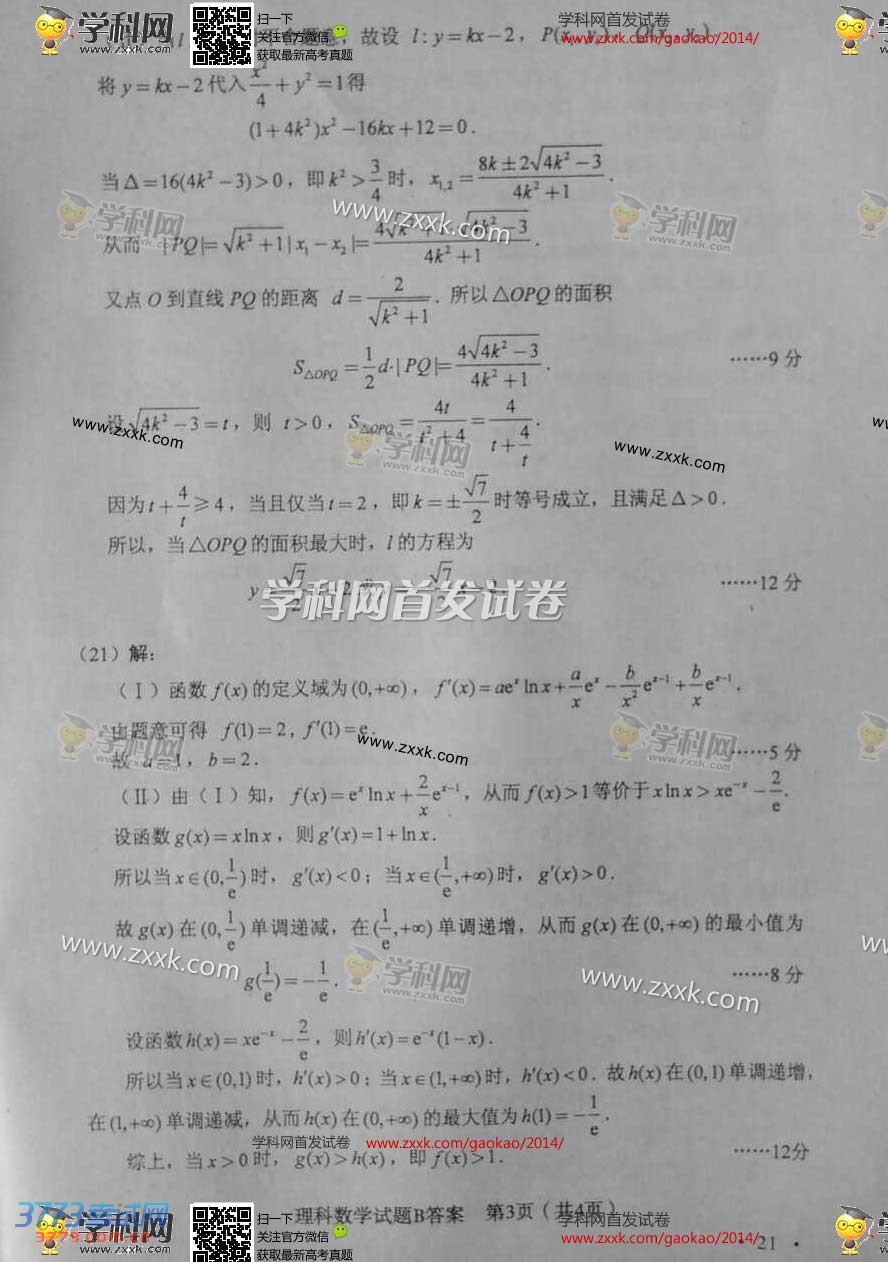 学科网 www.zxxk.com
扫一下
关注官方微信
获取最新高考真题
学科网首发试卷
www.zxxk.com/gaokao/2014/
故设 l: y = kx − 2，P(x₁, y₁)，Q(x₂, y₂)
将 y = kx − 2 代入 x²/4 + y² = 1 得
(1+4k²)x² − 16kx + 12 = 0.
当 Δ = 16(4k² − 3) > 0，即 k² > 3/4 时，x₁,₂ = (8k ± 2√(4k² − 3))/(4k² + 1).
从而 |PQ| = √(k² + 1)|x₁ − x₂| = 4√(k² + 1)·√(4k² − 3)/(4k² + 1).
又点 O 到直线 PQ 的距离 d = 2/√(k² + 1). 所以 △OPQ 的面积
S△OPQ = 1/2 d·|PQ| = 4√(4k² − 3)/(4k² + 1). ……9 分
设 √(4k² − 3) = t，则 t > 0，S△OPQ = 4t/(t² + 4) = 4/(t + 4/t).
因为 t + 4/t ≥ 4，当且仅当 t = 2，即 k = ±√7/2 时等号成立，且满足 Δ > 0.
所以，当 △OPQ 的面积最大时，l 的方程为
……12 分
学科网首发试卷
（21）解：
（Ⅰ）函数 f(x) 的定义域为 (0,+∞)，f′(x) = aeˣ ln x + (a/x)eˣ − (b/x²)eˣ⁻¹ + (b/x)eˣ⁻¹.
由题意可得 f(1) = 2，f′(1) = e.
故 a = 1，b = 2. ……5 分
（Ⅱ）由（Ⅰ）知，f(x) = eˣ ln x + (2/x)eˣ⁻¹，从而 f(x) > 1 等价于 x ln x > xe⁻ˣ − 2/e.
设函数 g(x) = x ln x，则 g′(x) = 1 + ln x.
所以当 x∈(0, 1/e) 时，g′(x) < 0；当 x∈(1/e, +∞) 时，g′(x) > 0.
故 g(x) 在 (0, 1/e) 单调递减，在 (1/e, +∞) 单调递增，从而 g(x) 在 (0,+∞) 的最小值为
g(1/e) = −1/e. ……8 分
设函数 h(x) = xe⁻ˣ − 2/e，则 h′(x) = e⁻ˣ(1 − x).
所以当 x∈(0,1) 时，h′(x) > 0；当 x∈(1,+∞) 时，h′(x) < 0. 故 h(x) 在 (0,1) 单调递增，
在 (1,+∞) 单调递减，从而 h(x) 在 (0,+∞) 的最大值为 h(1) = −1/e.
学科网首发试卷 www.zxxk.com/gaokao/2014/
综上，当 x > 0 时，g(x) > h(x)，即 f(x) > 1. ……12分
理科数学试题B答案 第3页（共4页）
3773考试网
扫一下
关注官方微信
获取最新高考真题
学科网首发试卷
www.zxxk.com/gaokao/2014/
·21·